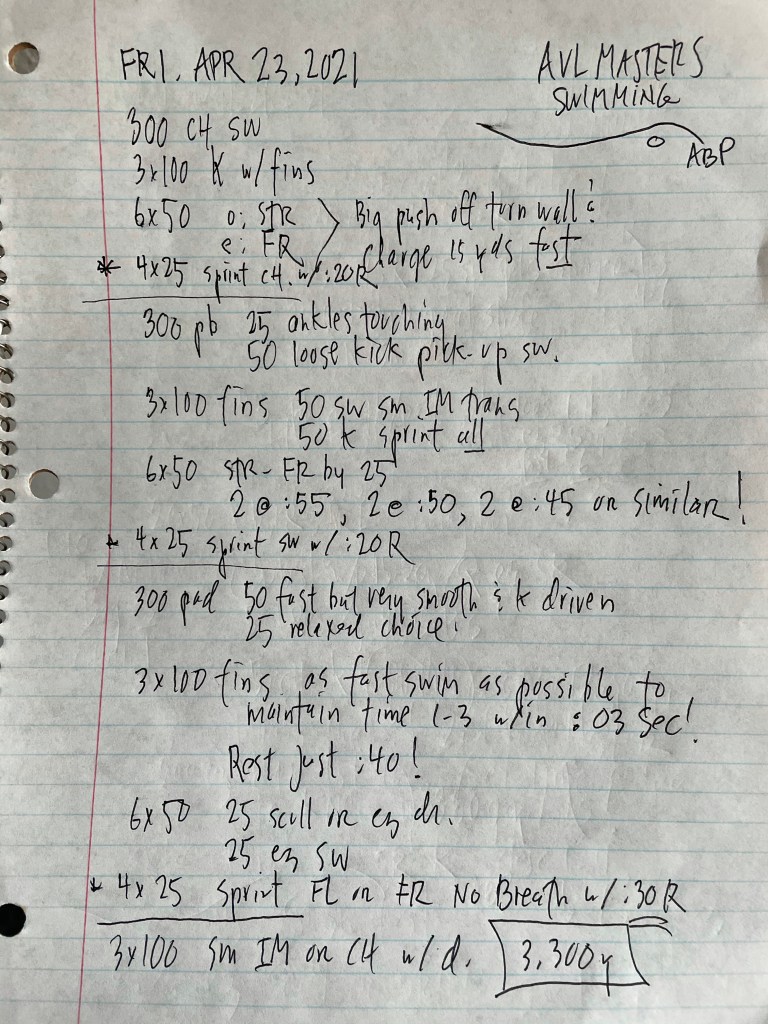 FRI, APR 23, 2021
AVL MASTERS
SWIMMING
ABP
300 CH SW
3x100 K w/ fins
6x50 o; STR
e; FR
Big push off turn wall &
Charge 15 yds fast
* 4x25 sprint CH. w/ :20R
300 pb 25 ankles touching
50 loose kick pick-up sw.
3x100 fins 50 sw sm IM trans
50 k sprint all
6x50 STR-FR by 25
2 @ :55, 2 @ :50, 2 @ :45 or similar!
* 4x25 sprint sw w/ :20R
300 pad 50 fast but very smooth & k driven
25 relaxed choice.
3x100 fins as fast swim as possible to
maintain time 1-3 w/in :03 sec!
Rest just :40!
6x50 25 scull or ez dr.
25 ez SW
* 4x25 Sprint FL or FR No Breath w/ :30R
3x100 sm IM or CH w/d. 3,300y